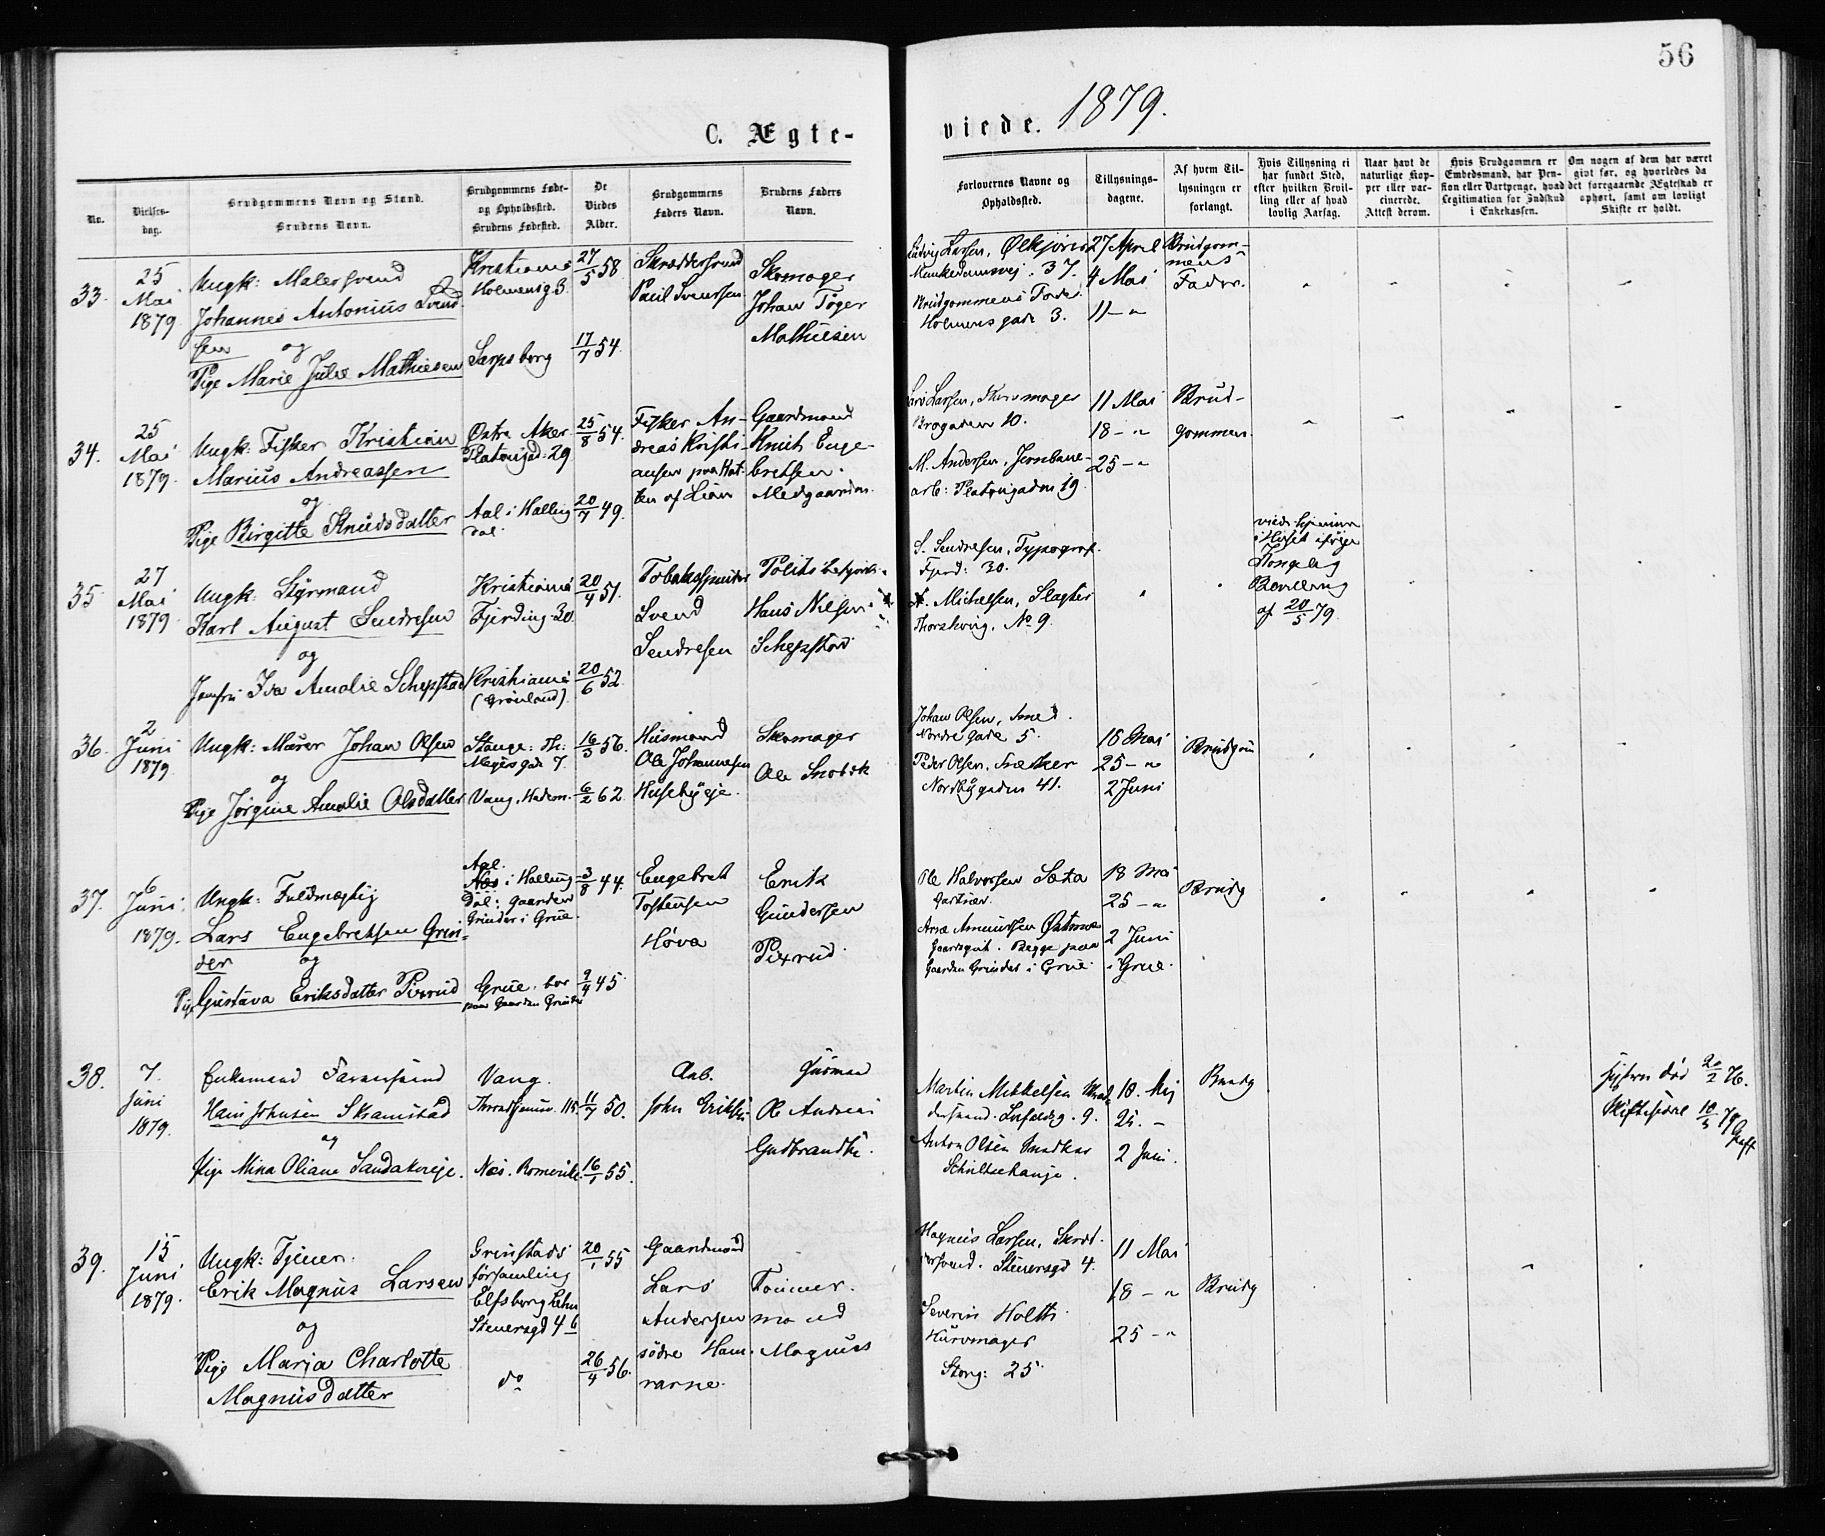 56
C. Ægte-
viede. 1879.
No.
Vielses-
dag.
Brudgommens Navn og Stand.
Brudens Navn.
Brudgommens Føde-
og Opholdssted.
Brudens Fødested.
De
Viedes
Alder.
Brudgommens
Faders Navn.
Brudens Faders
Navn.
Forlovernes Navne og
Opholdssted.
Tillysnings-
dagene.
Af hvem Til-
lysningen er
forlangt.
Hvis Tillysning ei
har fundet Sted,
efter hvilken Bevil-
ling eller af hvad
lovlig Aarsag.
Naar havt de
naturlige Kop-
per eller vac-
cinerede.
Attest derom.
Hvis Brudgommen er
Embedsmand, har Pen-
sion eller Vartpenge, hvad
Legitimation for Indskud
i Enkekassen.
Om nogen af dem har været
givt før, og hvorledes da
det foregaaende Ægteskab er
ophørt, samt om lovligt
Skifte er holdt.
33.
25
Mai
1879.
Ungk: Malersvend
Johannes Antonius Svend
sen og
Pige Marie Julie Mathiesen
Kristiania
Holmensg 3.
Sarpsborg
27/5 58
17/7 54.
Skræddersvend
Paul Svensen
Skomager
Johan Tøger
Mathiesen
Ludvig Larsen, Ølkjører
Munkedamsvej. 37.
Brudgommens Fader
Holmensgade 3.
27 April
4 Mai
11 - "
Brudgom-
mens
Fader.
34.
25
Mai
1879.
Ungk: Fisker Kristian
Marius Andreassen
og
Pige Birgitte Knudsdatter
Østre Aker
Platousgad. 29
Aal i Halling
dal
25/8 54.
20/7 49.
Fisker An-
dreas Kristi-
ansen paa Hat-
ten af Lian
Gaardmand
Knut Enge-
bretsen
Medgaarden.
Lars Larsen, Skomager
Brogaden 10.
M. Andersen, Jernbane-
arb: Platousgaden 19.
11 Mai
18 - "
25 - "
Brud-
gommen.
35.
27
Mai
1879.
Ungk: Styrmand
Karl August Sendresen
og
Jomfru Ida Amalie Schepstad
Kristiania
Fjerding. 30.
Kristiania
(Grønland)
20/4 51.
20/6 52.
Tobaksspinder
Svend
Sendresen
Politibetjent
Hans Nilsen
Schepstad
S. Sendresen, Typograf.
Fjerd: 30.
Michelsen, Slagter
Thorshaug, No 9.
viede hjemme
i Huset ifølge
Kongelig
Bevilling
af 20/5 79.
36.
2
Juni
1879
Ungk: Murer Johan Olsen
og
Pige Jørgine Amalie Olsdatter
Stange: Th:
Meyersgade 7.
Vang, Hedem.
16/3 56.
6/2 62.
Husmand
Ole Johannesen
Husebyeje.
Skomager
Ole Snobæk
Johan Olsen, Smed.
Nordre gade 5.
Peder Olsen, Snekker
Nordbygaden 41.
18 Mai
25 - "
2 Juni
Brudgom
37.
6
Juni
1879.
Ungk: Fuldmægtig
Lars Engebretsen Grin-
der
og
Pige Gustava Eriksdatter Pixrud
Aal
Næs i Halling
dal: Gaarden
Grinder i Grue.
Grue. bor
paa Gaarden Grinder
3/8 44.
9/4 45.
Engebret
Tostensen
Høva
Erik
Gundersen
Pixrud.
Ole Halvorsen Sæta
Gartner.
Arne Amundsen Østmoe
Gaardgut. Begge paa
Gaarden Grinder i Grue
18 Mai
25 - "
2 Juni
i Grue.
Brudg
38.
7.
Juni
1879.
Enkemand Farversvend
Hans Johnsen Skramstad
og
Pige Mina Oliane Sandakereje.
Vang.
Throndhjemsv. 115
Næs. Romerike.
11/7 50.
16/1 55.
Aab.
John Eriksen
Husmand
Ole Andreas
Gudbrandsen.
Martin Mikkelsen
Anton Olsen Snedker
Schultzehauge.
18. Maj
25. -
2 Juni.
Brudg
Hustru død 20/2 76.
39.
15
Juni
1879.
Ungk: Tjener.
Erik Magnus Larsen
og
Pige Maria Charlotte
Magnusdatter
Grinstads
forsamling
Elfsborg Lehn
Steuersgd 4 b
do
20/1 55
26/4 56.
Gaardmand
Lars
Andersen
södre Ham-
rarne.
Tømmer.
mand
Magnus
Magnus Larsen, Skræd-
dersvend. Steuersgd 4.
Severin Holth
Kurvmager
Storg: 25.
11 Mai
18 - "
25 - "
Brudg